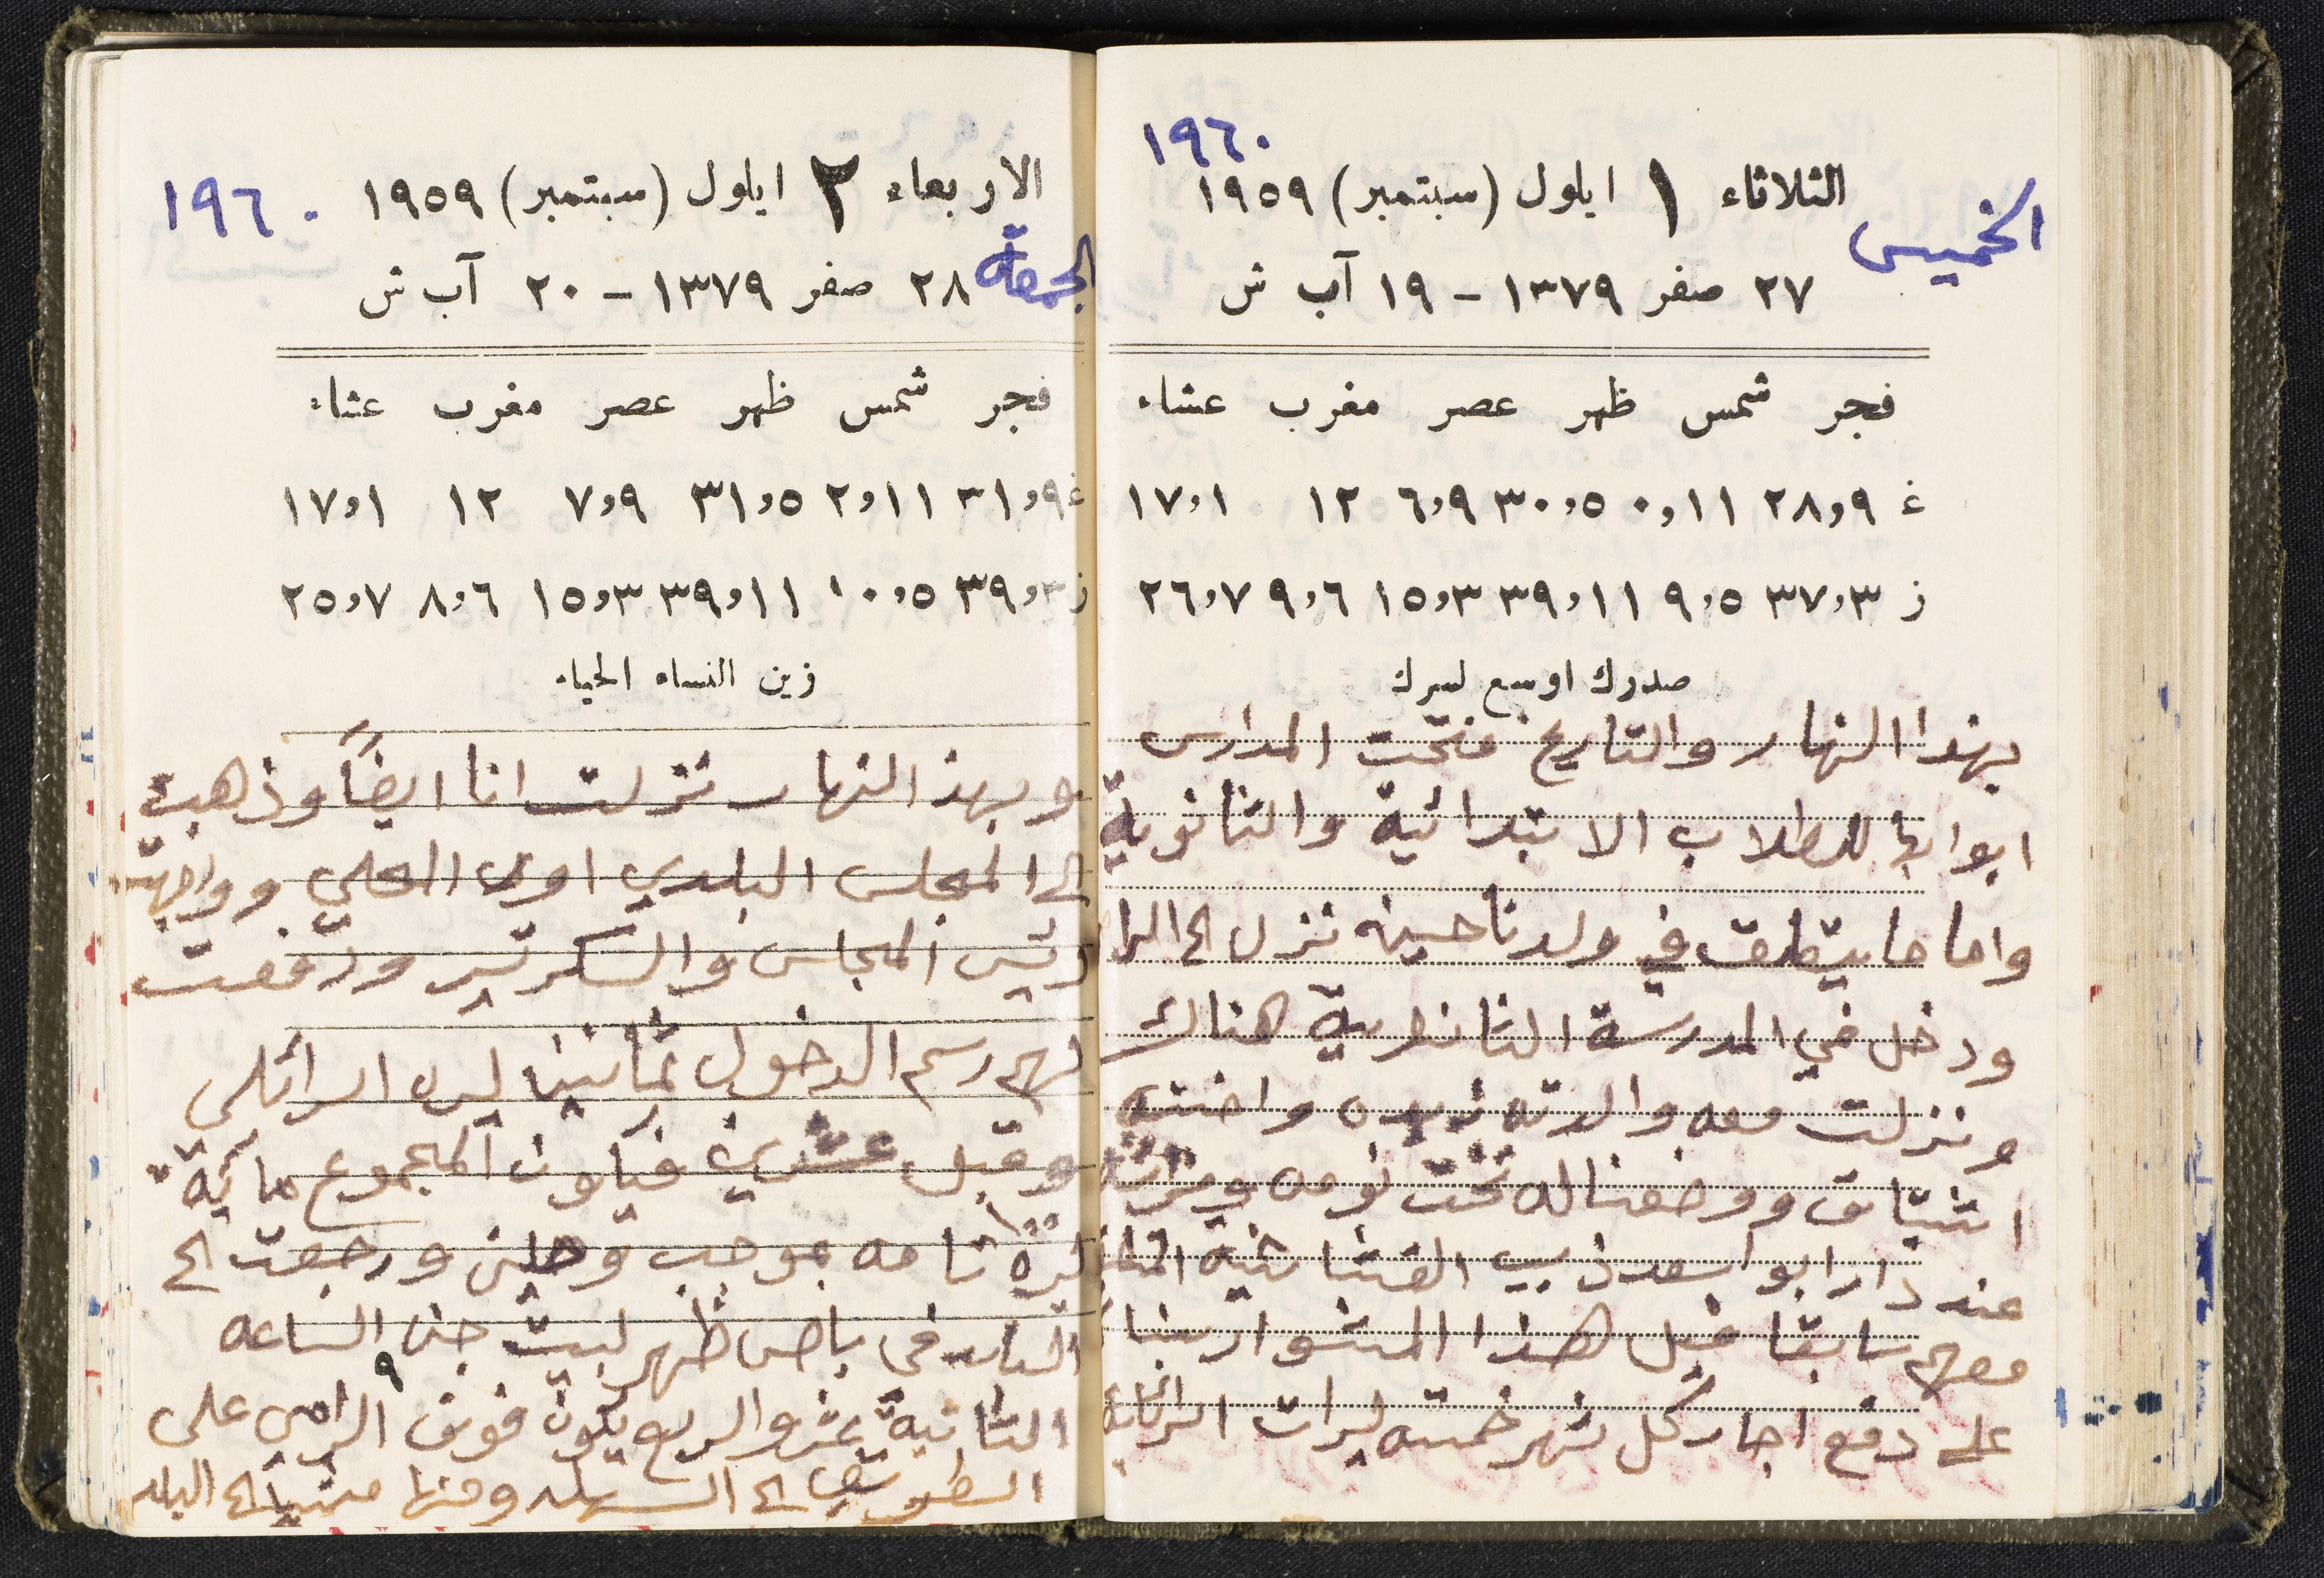 ١٩٦٠
الخميس
الثلاثاء ١ ايلول (سبتمبر) ١٩٥٩
٢٧ صفر ١٣٧٩ - ١٩ آب ش
فجر شمس ظهر عصر مغرب عشاء
غ ٢٨،٩ ٠،١١ ٣٠،٥ ٦،٩ ١٢ ١٧،١
ز ٣٧،٣ ٩،٥ ٣٩،١١ ١٥،٣ ٩،٦ ٢٦،٧
صدرك اوسع لسرك
بهذا النهار والتاريخ فتحت المدارس
ابوابها للطلاب الابتدائية والثانوية
واما ما يتعلق في ولدنا حسين نزل الى الرامه
ودخل في المدرسة الثانوية هناك
ونزلت معه والدته واخته
ووضعنا له تخت نومه
عند دار ابو اسعد ذيب
معهم سابقا قبل هذا المشوار
على دفع اجار كل شهر خمسه ليرات
الاربعاء ٢ ايلول (سبتمبر) ١٩٥٩
١٩٦٠
الجمعة
٢٨ صفر ١٣٧٩ - ٢٠ آب ش
فجر شمس ظهر عصر مغرب عشاء
غ ٣١،٩ ٢،١١ ٣١،٥ ٧،٩ ١٢ ١٧،١
ز ٣٩،٣ ١٠،٥ ٣٩،١١ ١٥،٣ ٨،٦ ٢٥،٧
زين النساء الحياء
وبهذ النهار نزلت انا ايضاً وذهبت
الى المجلس البلدي اوى المحلي وواجهت
رئيس المجلس والسكرتير ودفعت
لهم رسم الدخول ثمانين ليره
وقبل عشرين فيكون المجموع مائية
١٠٠
ليرة تامه بموجب وصلين ورجعت الى
البلد في باص ظهر لبيت جن الساعه
٩
الثانية عشر والربع يكون فوق الرامي على
الى السهله ومنها مشياً الى البلد